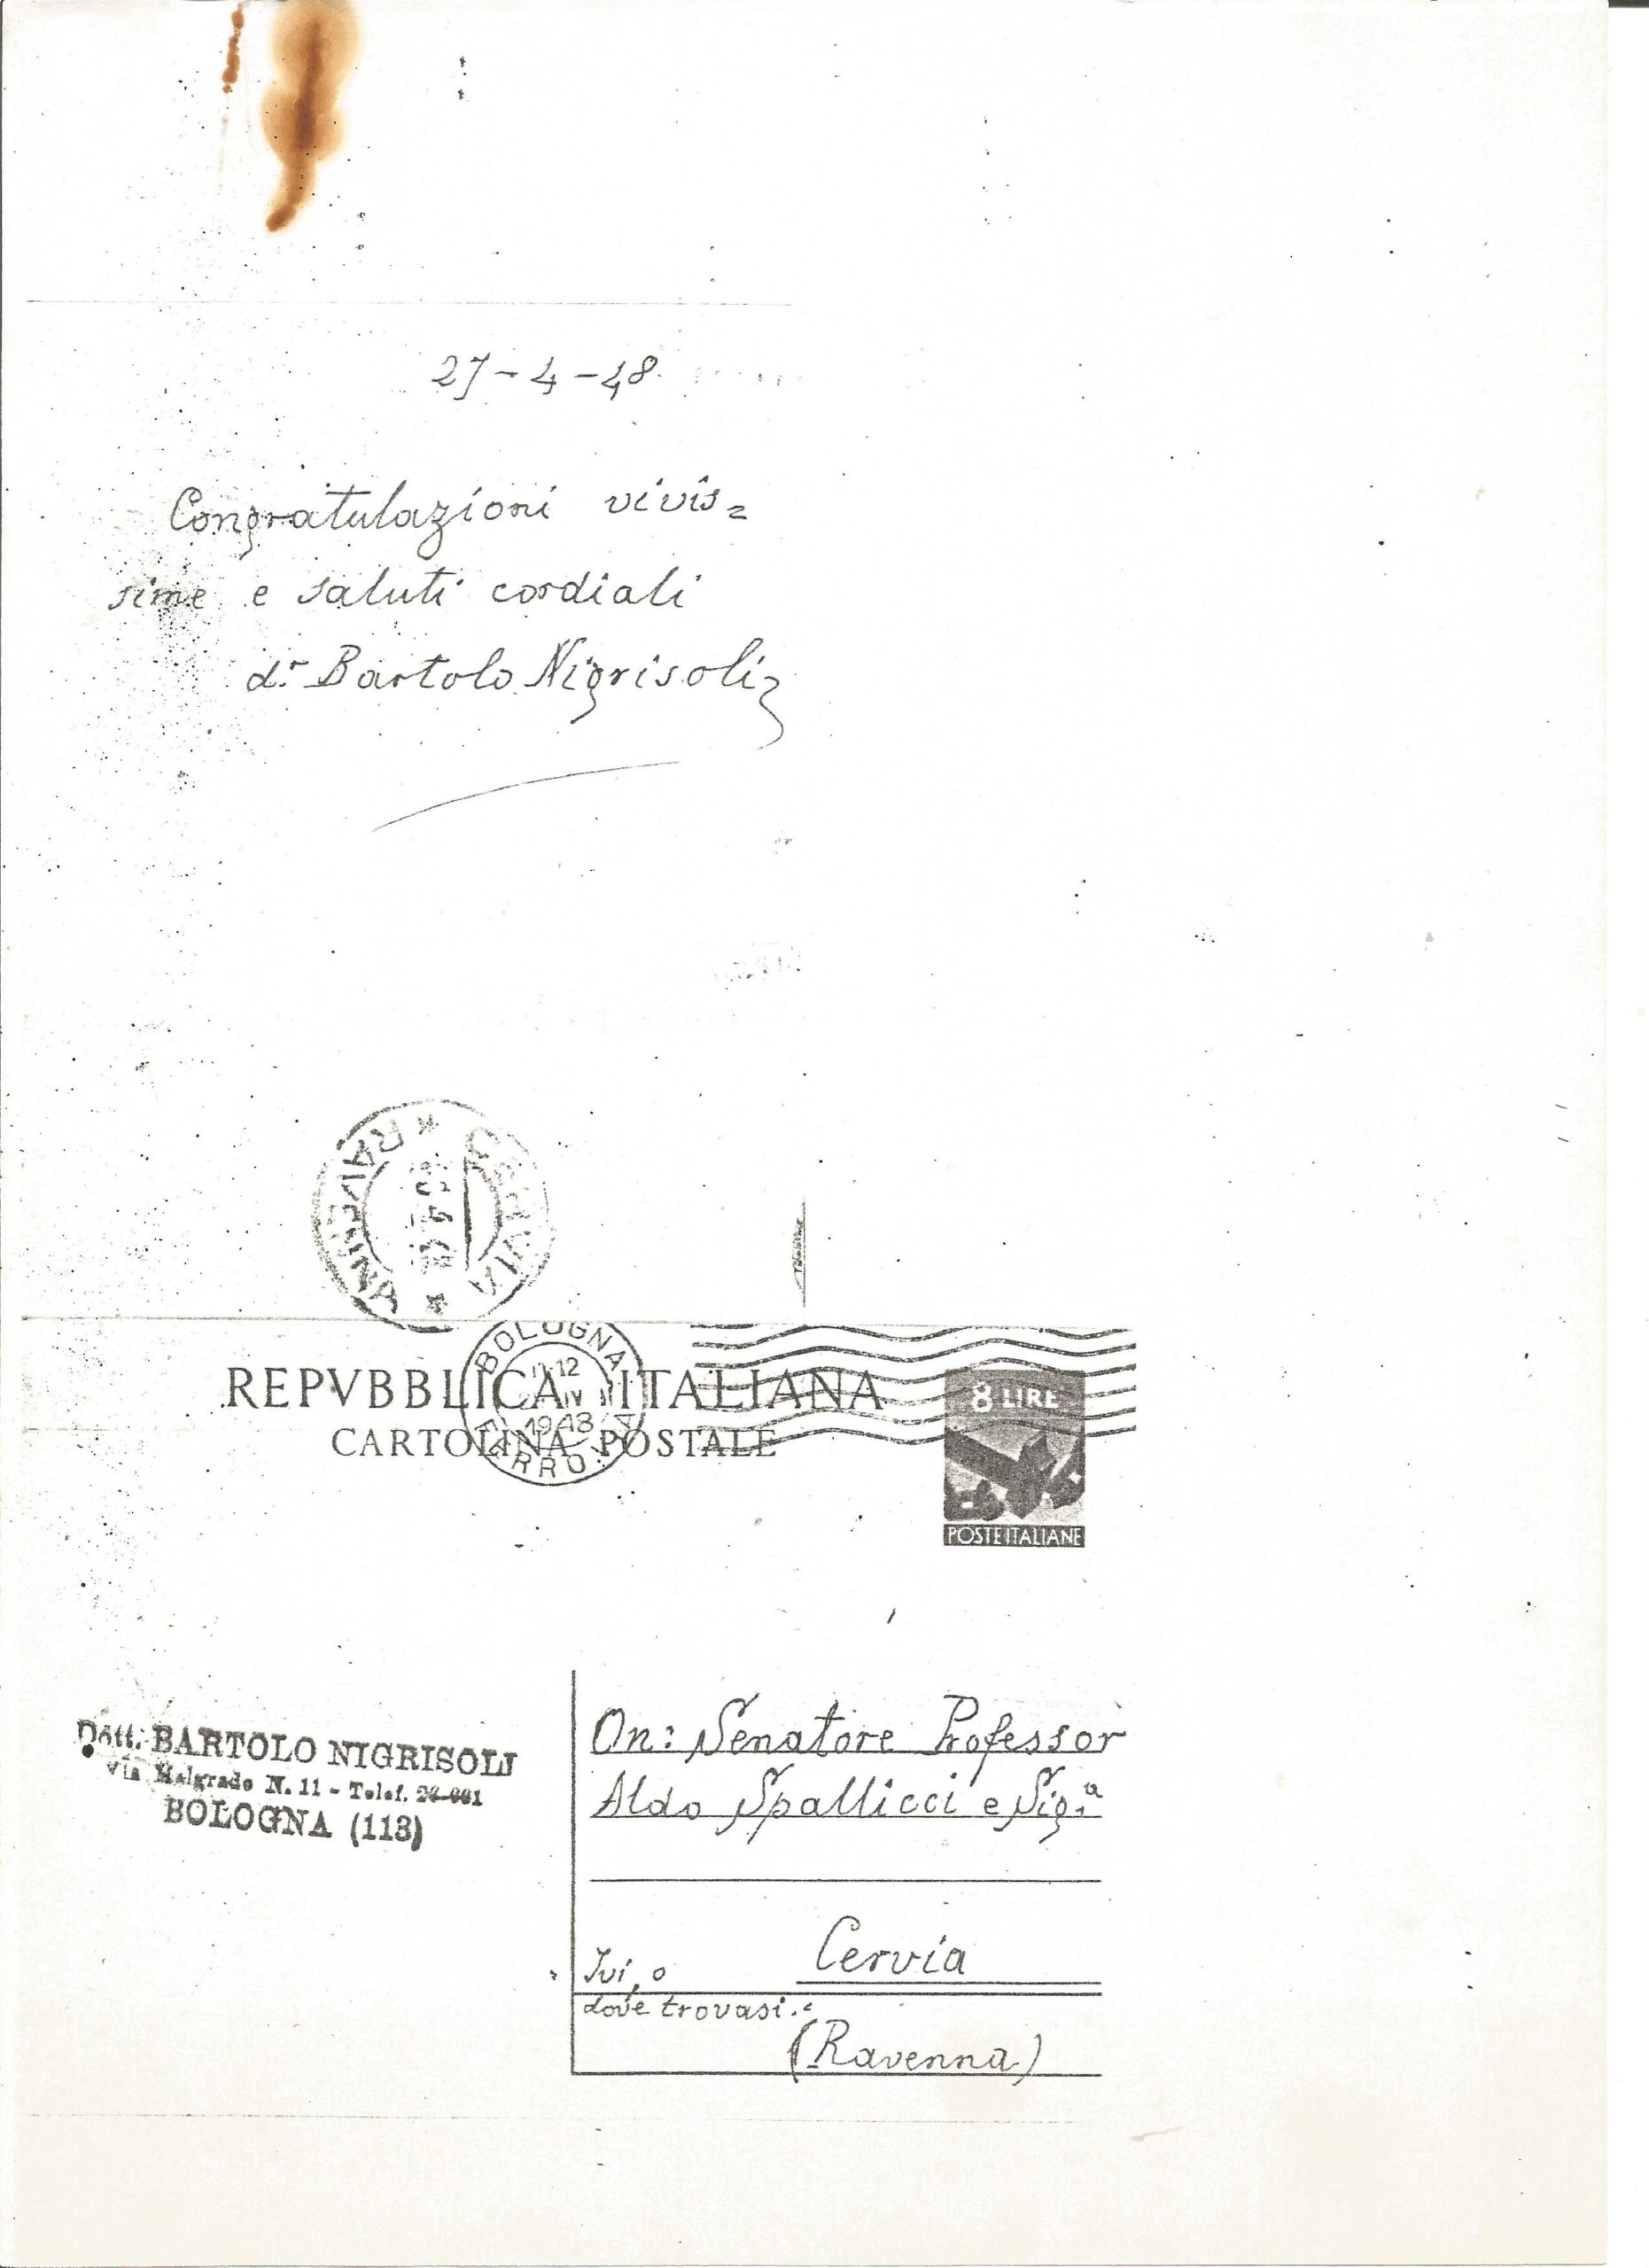 27-4-48
Congratulazioni vivis=
sime e saluti cordiali
dr Bartolo Nigrisoli
CERVIA
* RAVENNA *
BOLOGNA
1948
FERROVIA
REPVBBLICA ITALIANA
CARTOLINA POSTALE
8 LIRE
POSTE ITALIANE
Dott. BARTOLO NIGRISOLI
Via Malgrado N. 11 - Telef.
BOLOGNA (113)
On: Senatore Professor
Aldo Spallicci e Sig.a
Cervia
Ivi, o
dove trovasi.
(Ravenna)